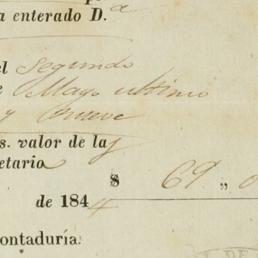 a enterado D.a
el segundo
e Mayo ultimo
y nueve
s. valor de la
etario
$ 69 „ 0
de 184
ontaduría.